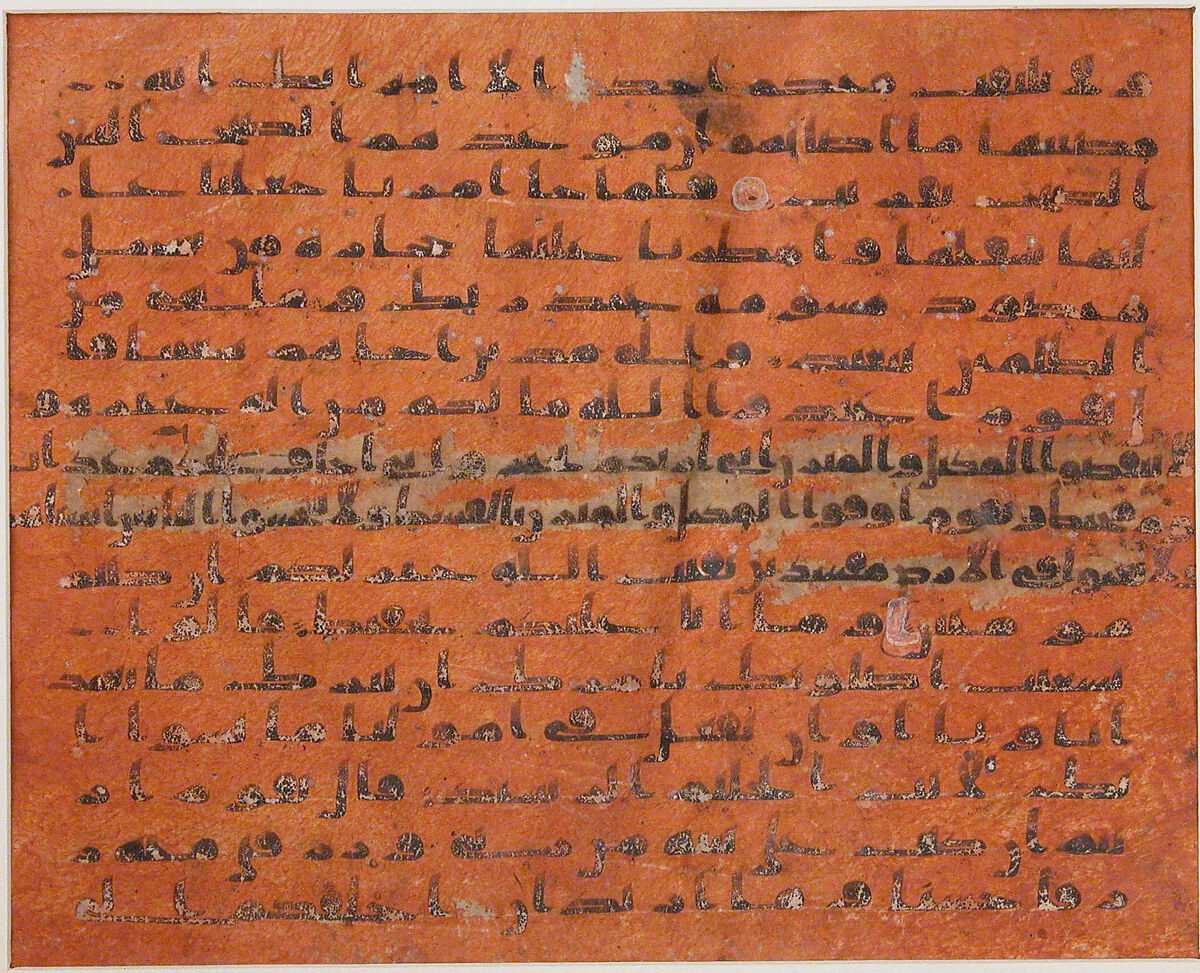 ولا يلتفت منكم احد الا امراتك انه
مصيبها ما اصابهم ان موعدهم الصبح اليس
الصبح بقريب فلما جا امرنا جعلنا عا
ليها سافلها وامطرنا عليها حجارة من سجيل
منضود مسومة عند ربك وما هي من
الظلمين ببعيد والى مدين اخاهم شعيبا قا
ل يقوم اعبدوا الله ما لكم من اله غيره و
لا تنقصوا المكيل والميزن اني اريكم بخير واني اخاف عليكم عذاب
يوم محيط ويقوم اوفوا المكيل والميزن بالقسط ولا تبخسوا الناس اشياهم
ولا تعثوا في الارض مفسدين بقيت الله خير لكم ان كنتم
مومنين وما انا عليكم بحفيظ قالوا
يشعيب اصلوتك تامرك ان نترك ما يعبد
اباونا او ان نفعل في امولنا ما نشوا ا
نك لانت الحليم الرشيد قال يقوم ار
يتم ان كنت على بينة من ربي ورزقني منه
رزقا حسنا وما اريد ان اخالفكم الى